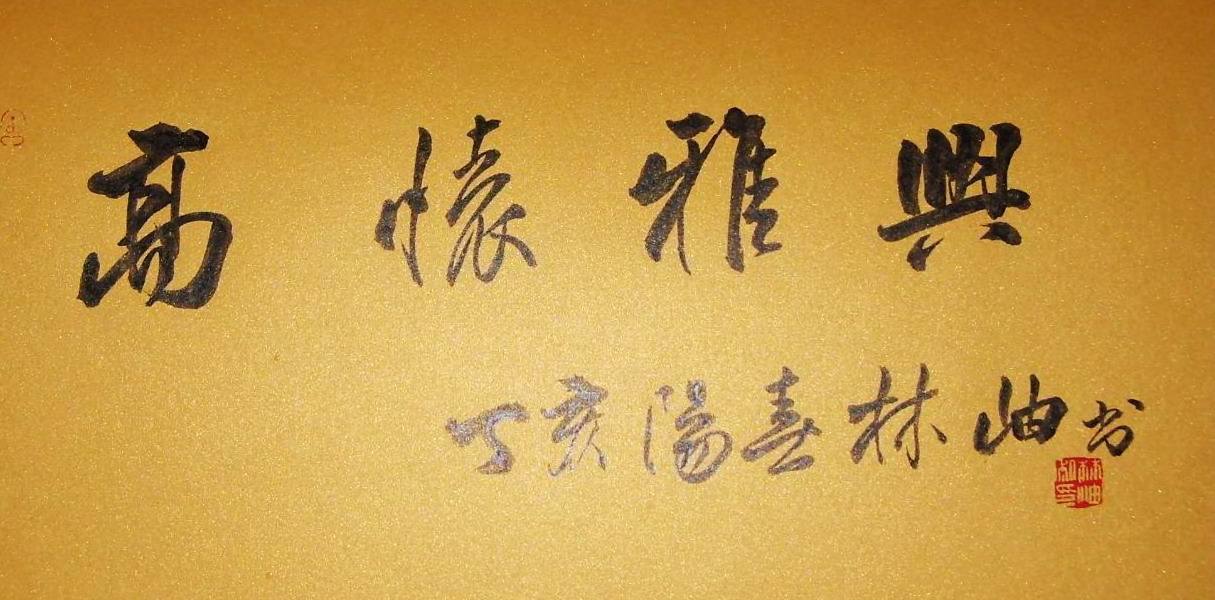 高懷雅興
丁亥陽春林岫书